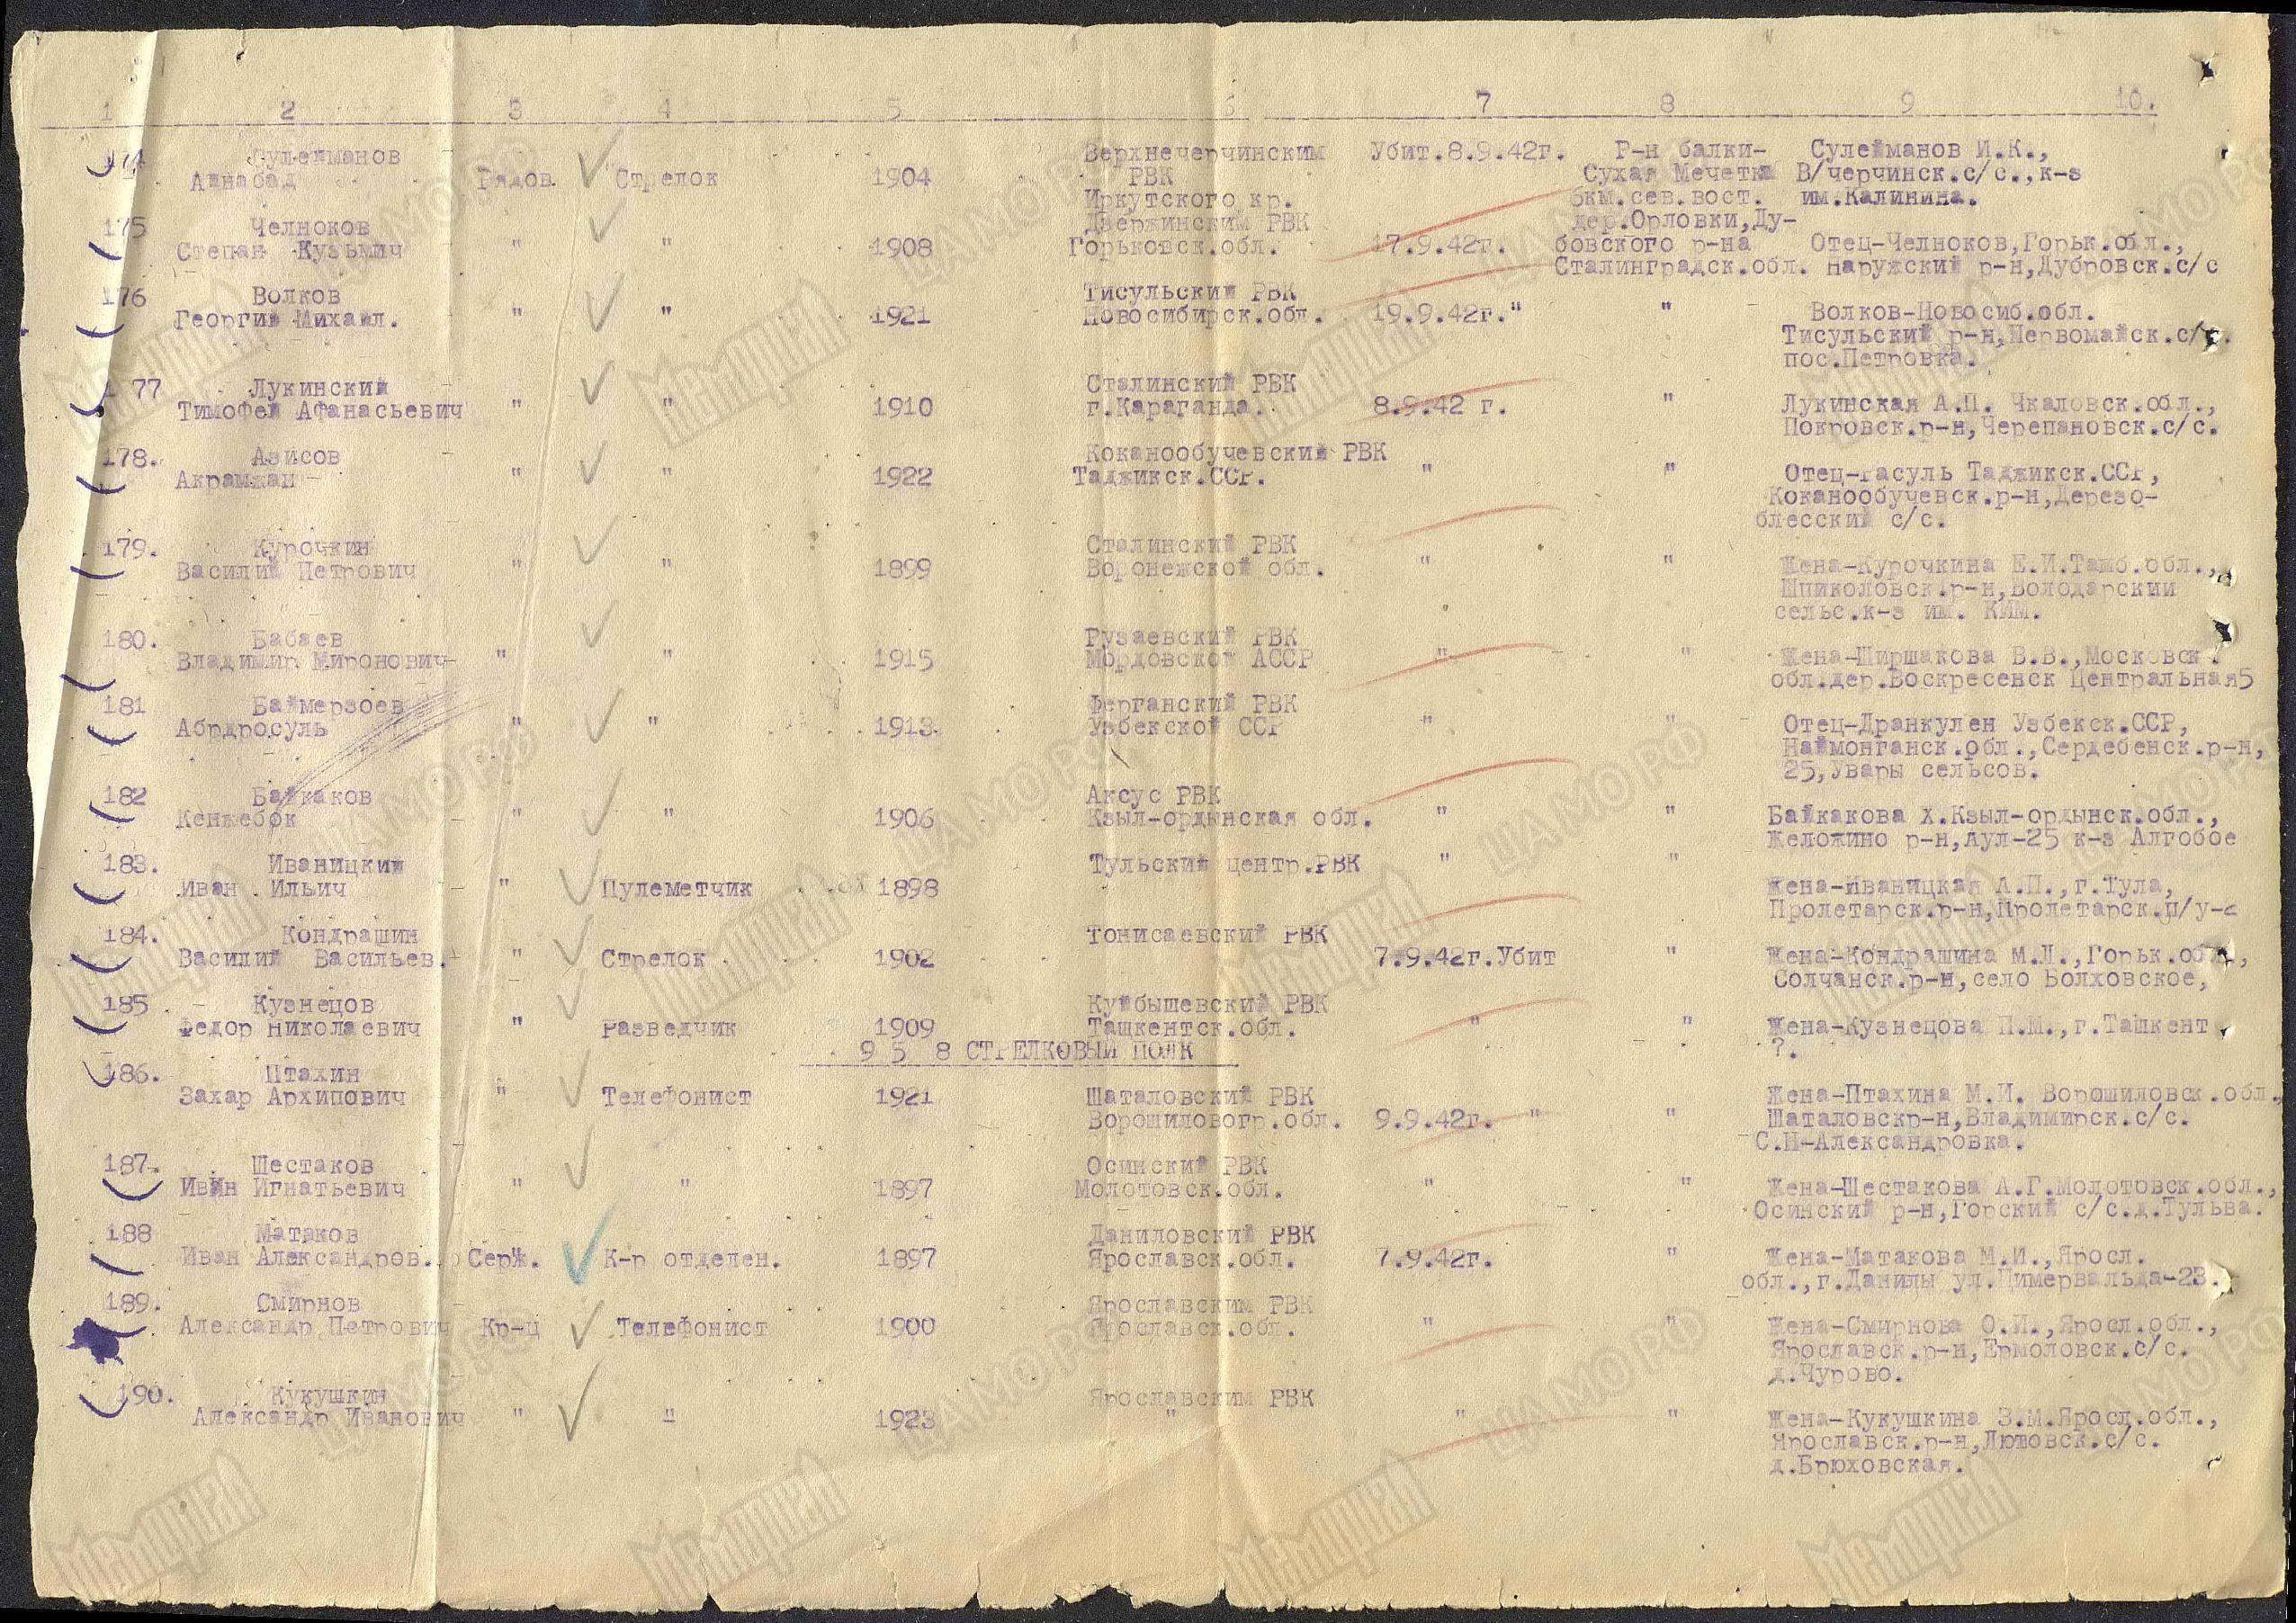 1 2 3 4 5 6 7 8 9 10.
174 Сулейманов Верхнечерчинским Убит.8.9.42г. Р-н балки- Сулейманов И.К.,
Ашнабад Рядов. Стрелок 1904 РВК Сухая Мечетка В/черчинск.с/с.,к-з
Иркутского кр. 6км.сев.вост. им.Калинина.
175 Челноков Дзержинским РВК дер.Орловки,Ду-
Степан Кузьмич " " 1908 Горьковск.обл. 17.9.42г. бовского р-на Отец-Челноков,Горьк.обл.,
Сталинградск.обл. Наружский р-н,Дубровск.с/с
176 Волков Тисульский РВК
Георгий Михайл. " " 1921 Новосибирск.обл. 19.9.42г." " Волков-Новосиб.обл.
Тисульский р-н,Первомайск.с/с.
пос.Петровка.
177 Лукинский Сталинский РВК
Тимофей Афанасьевич " " 1910 г.Караганда. 8.9.42 г. " Лукинская А.П. Чкаловск.обл.,
Покровск.р-н,Черепановск.с/с.
178. Азисов Коканообучевский РВК
Акрамжан " " 1922 Таджикск.ССР. " " Отец-Расуль Таджикск.ССР,
Коканообучевск.р-н,Дерезо-
блесский с/с.
179. Курочкин Сталинский РВК
Василий Петрович " " 1899 Воронежской обл. " " Жена-Курочкина Е.И.Тамб.обл.,
Шпиколовск.р-н,Володарский
сельс.к-з им. КИМ.
180. Бабаев Рузаевский РВК
Владимир Миронович " " 1915 Мордовской АССР " " Жена-Ширшакова В.В.,Московск.
обл.дер.Воскресенск Центральная5
181 Баймерзоев Ферганский РВК
Абрдросуль " " 1913 Узбекской ССР " " Отец-Дранкулен Узбекск.ССР,
Наймонганск.обл.,Сердебенск.р-н,
25,Увары сельсов.
182 Байкаков Аксус РВК
Кенжебок " " 1906 Кзыл-ордынская обл. " " Байкакова Х.Кзыл-ордынск.обл.,
Желожино р-н,аул-25 к-з Алгобое
183. Иваницкий Тульский центр.РВК " "
Иван Ильич " Пулеметчик 1898 Жена-Иваницкая А.П.,г.Тула,
Пролетарск.р-н,Пролетарск.п/у-
184. Кондрашин Тонисаевский РВК
Василий Васильев. " Стрелок 1902 7.9.42г.Убит " Жена-Кондрашина М.Л.,Горьк.обл.,
Солчанск.р-н,село Болховское,
185 Кузнецов Куйбышевский РВК
Федор Николаевич " Разведчик 1909 Ташкентск.обл. " " Жена-Кузнецова П.М.,г.Ташкент
9 5 8 СТРЕЛКОВЫЙ ПОЛК ?.
186. Птахин
Захар Архипович " Телефонист 1921 Шаталовский РВК Жена-Птахина М.И. Ворошиловск.обл.,
Ворошиловогр.обл. 9.9.42г. " " Шаталовскр-н,Владимирск.с/с.
С.Н-Александровка.
187. Шестаков Осинский РВК
Иван Игнатьевич " " 1897 Молотовск.обл. " " Жена-Шестакова А.Г.Молотовск.обл.,
Осинский р-н,Горский с/с.д.Тульва.
188 Матаков Даниловский РВК
Иван Александров. Серж. К-р отделен. 1897 Ярославск.обл. 7.9.42г. " Жена-Матакова М.И.,Яросл.
обл.,г.Данилы ул.Цимервальда-23.
189. Смирнов Ярославским РВК
Александр Петрович Кр-ц Телефонист 1900 Ярославск.обл. " " Жена-Смирнова О.И.,Яросл.обл.,
Ярославск.р-н,Ермоловск.с/с.
д.Чурово.
190. Кукушкин Ярославским РВК
Александр Иванович " " 1923 " " " Жена-Кукушкина З.М.Яросл.обл.,
Ярославск.р-н,Лютовск.с/с.
д.Брюховская.